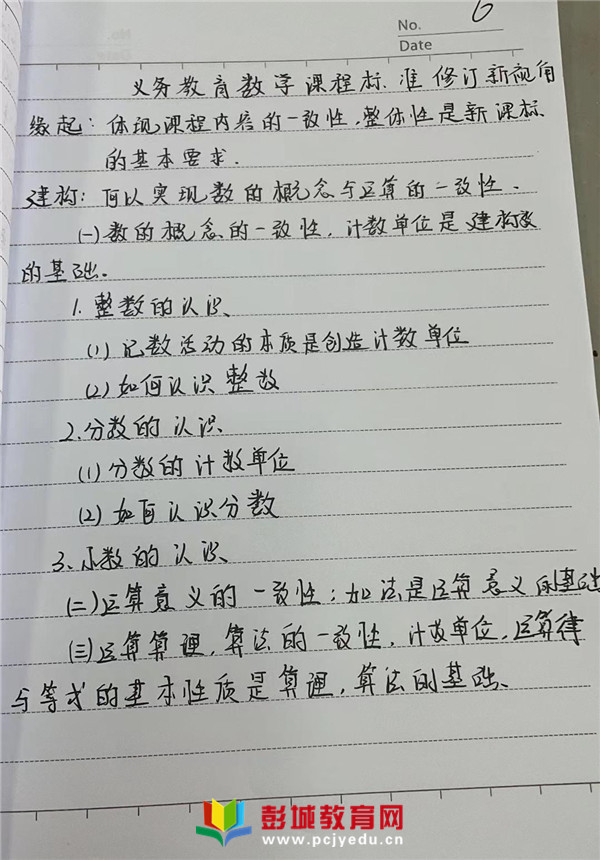 No. 6
Date
义务教育数学课程标准修订新视角
缘起：体现课程内容的一致性，整体性是新课标
的基本要求.
建构：何以实现数的概念与运算的一致性.
(一)数的概念的一致性，计数单位是建构数
的基础。
1.整数的认识、
(1)记数活动的本质是创造计数单位
(2)如何认识整数
2.分数的认识
(1)分数的计数单位
(2)如何认识分数
3.小数的认识、
(二)运算意义的一致性：加法是运算意义的基础
(三)运算算理，算法的一致性，计数单位，运算律
与等式的基本性质是算理，算法的基础、
彭城教育网
www.pcjyedu.cn